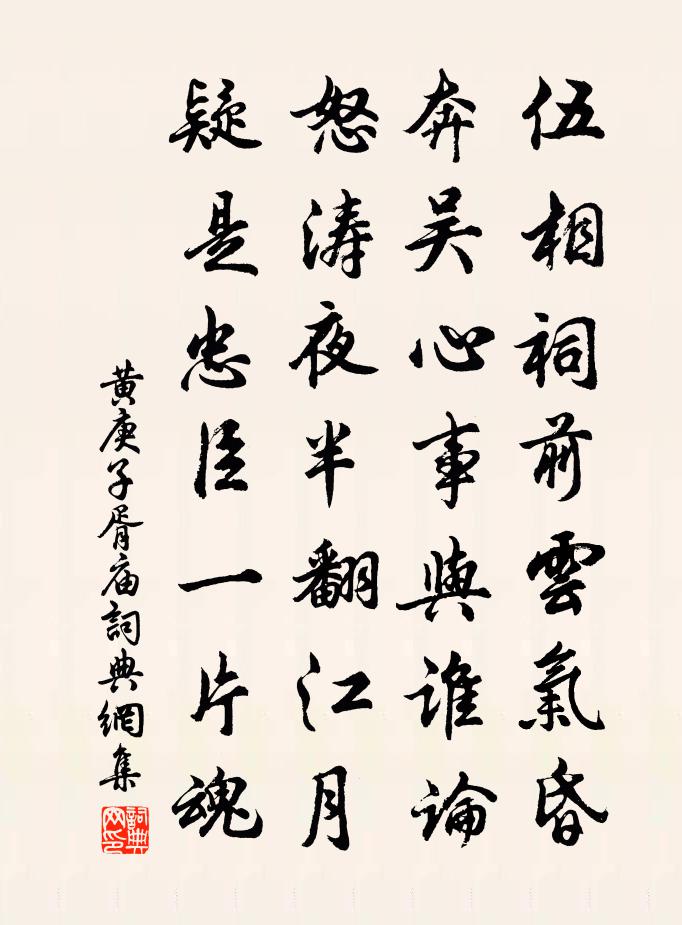 伍相祠前雲氣昏
奔吴心事與誰論
怒涛夜半翻江月
疑是忠臣一片魂
黄庚子胥庙詞典網集
詞典网印